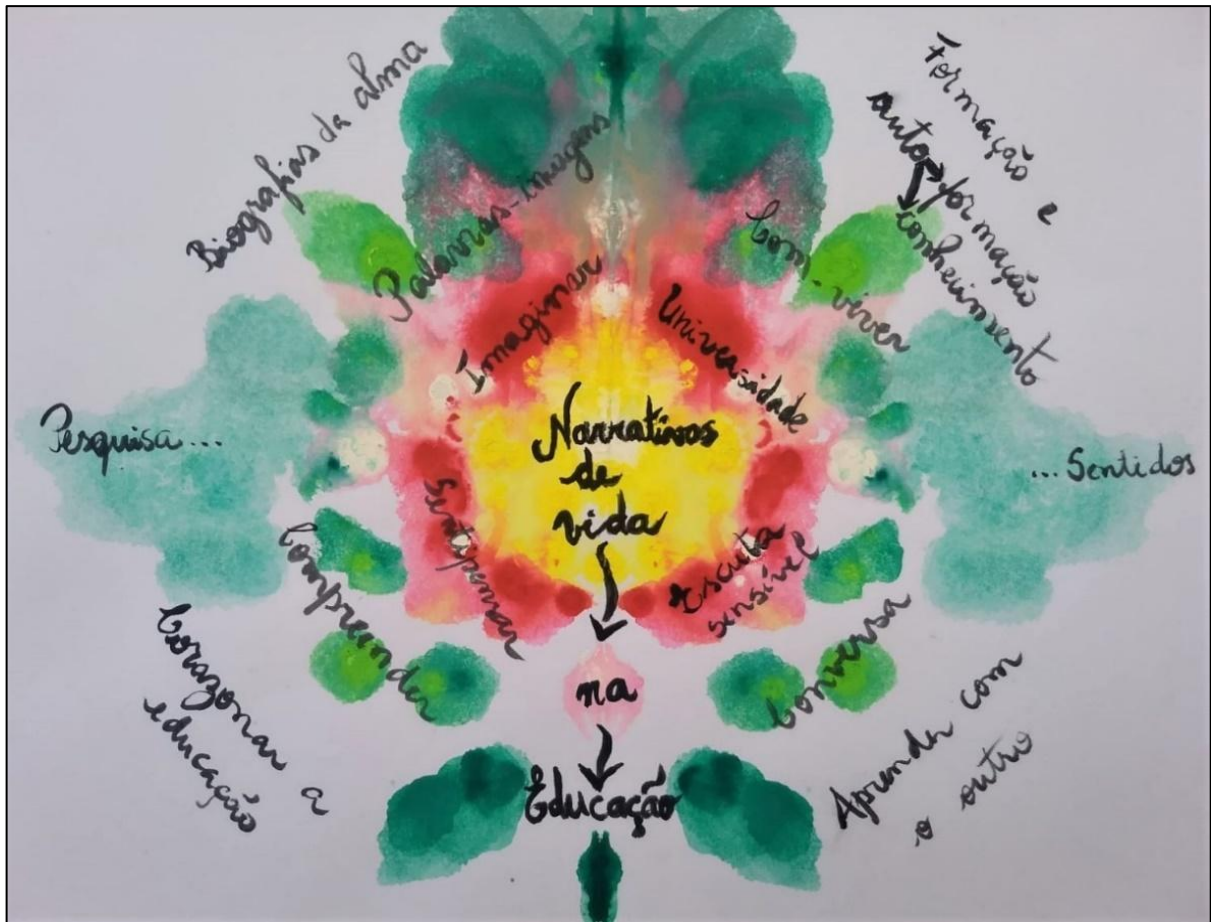 Biografias da alma
Palavras-imagens
Imaginar
Formação e
auto formação
conhecimento
Com-viver
Universidade
Pesquisa...
Narrativas
de
vida
... Sentidos
Sentipensar
Escuta
sensível
Compreender
Conversa
na
Corazonar a
educação
Educação
Aprender com
o outro